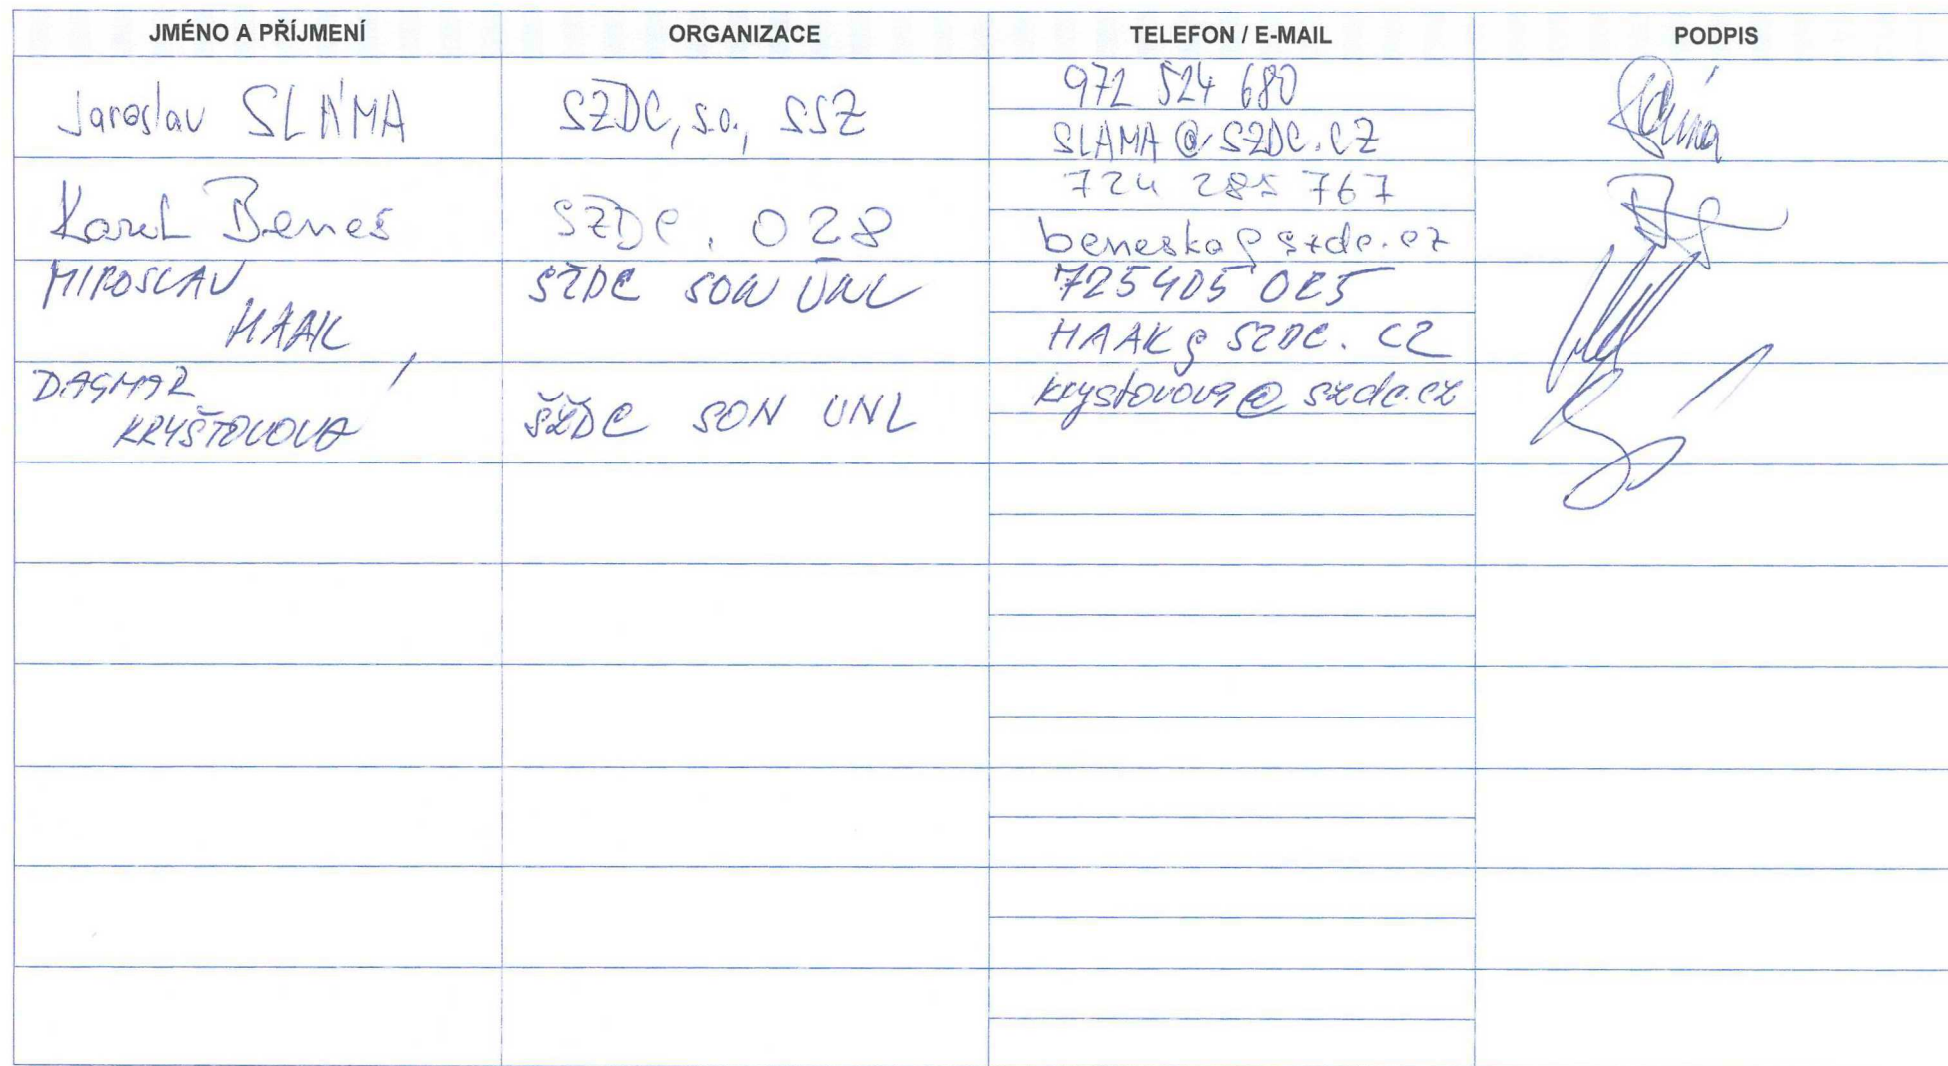 JMÉNO A PŘÍJMENÍ ORGANIZACE TELEFON / E-MAIL PODPIS
Jaroslav SLÁMA SŽDC, s.o., SSZ 972 524 680
SLAMA@SZDC.CZ
Karel Beneš SŽDC, 028 724 285 767
beneska@szdc.cz
MIROSLAV SŽDC SON UNL 725405 025
HAAK HAAK@SZDC.CZ
DAGMAR krystovova@szdc.cz
KRYŠTOVOVÁ SŽDC SON UNL